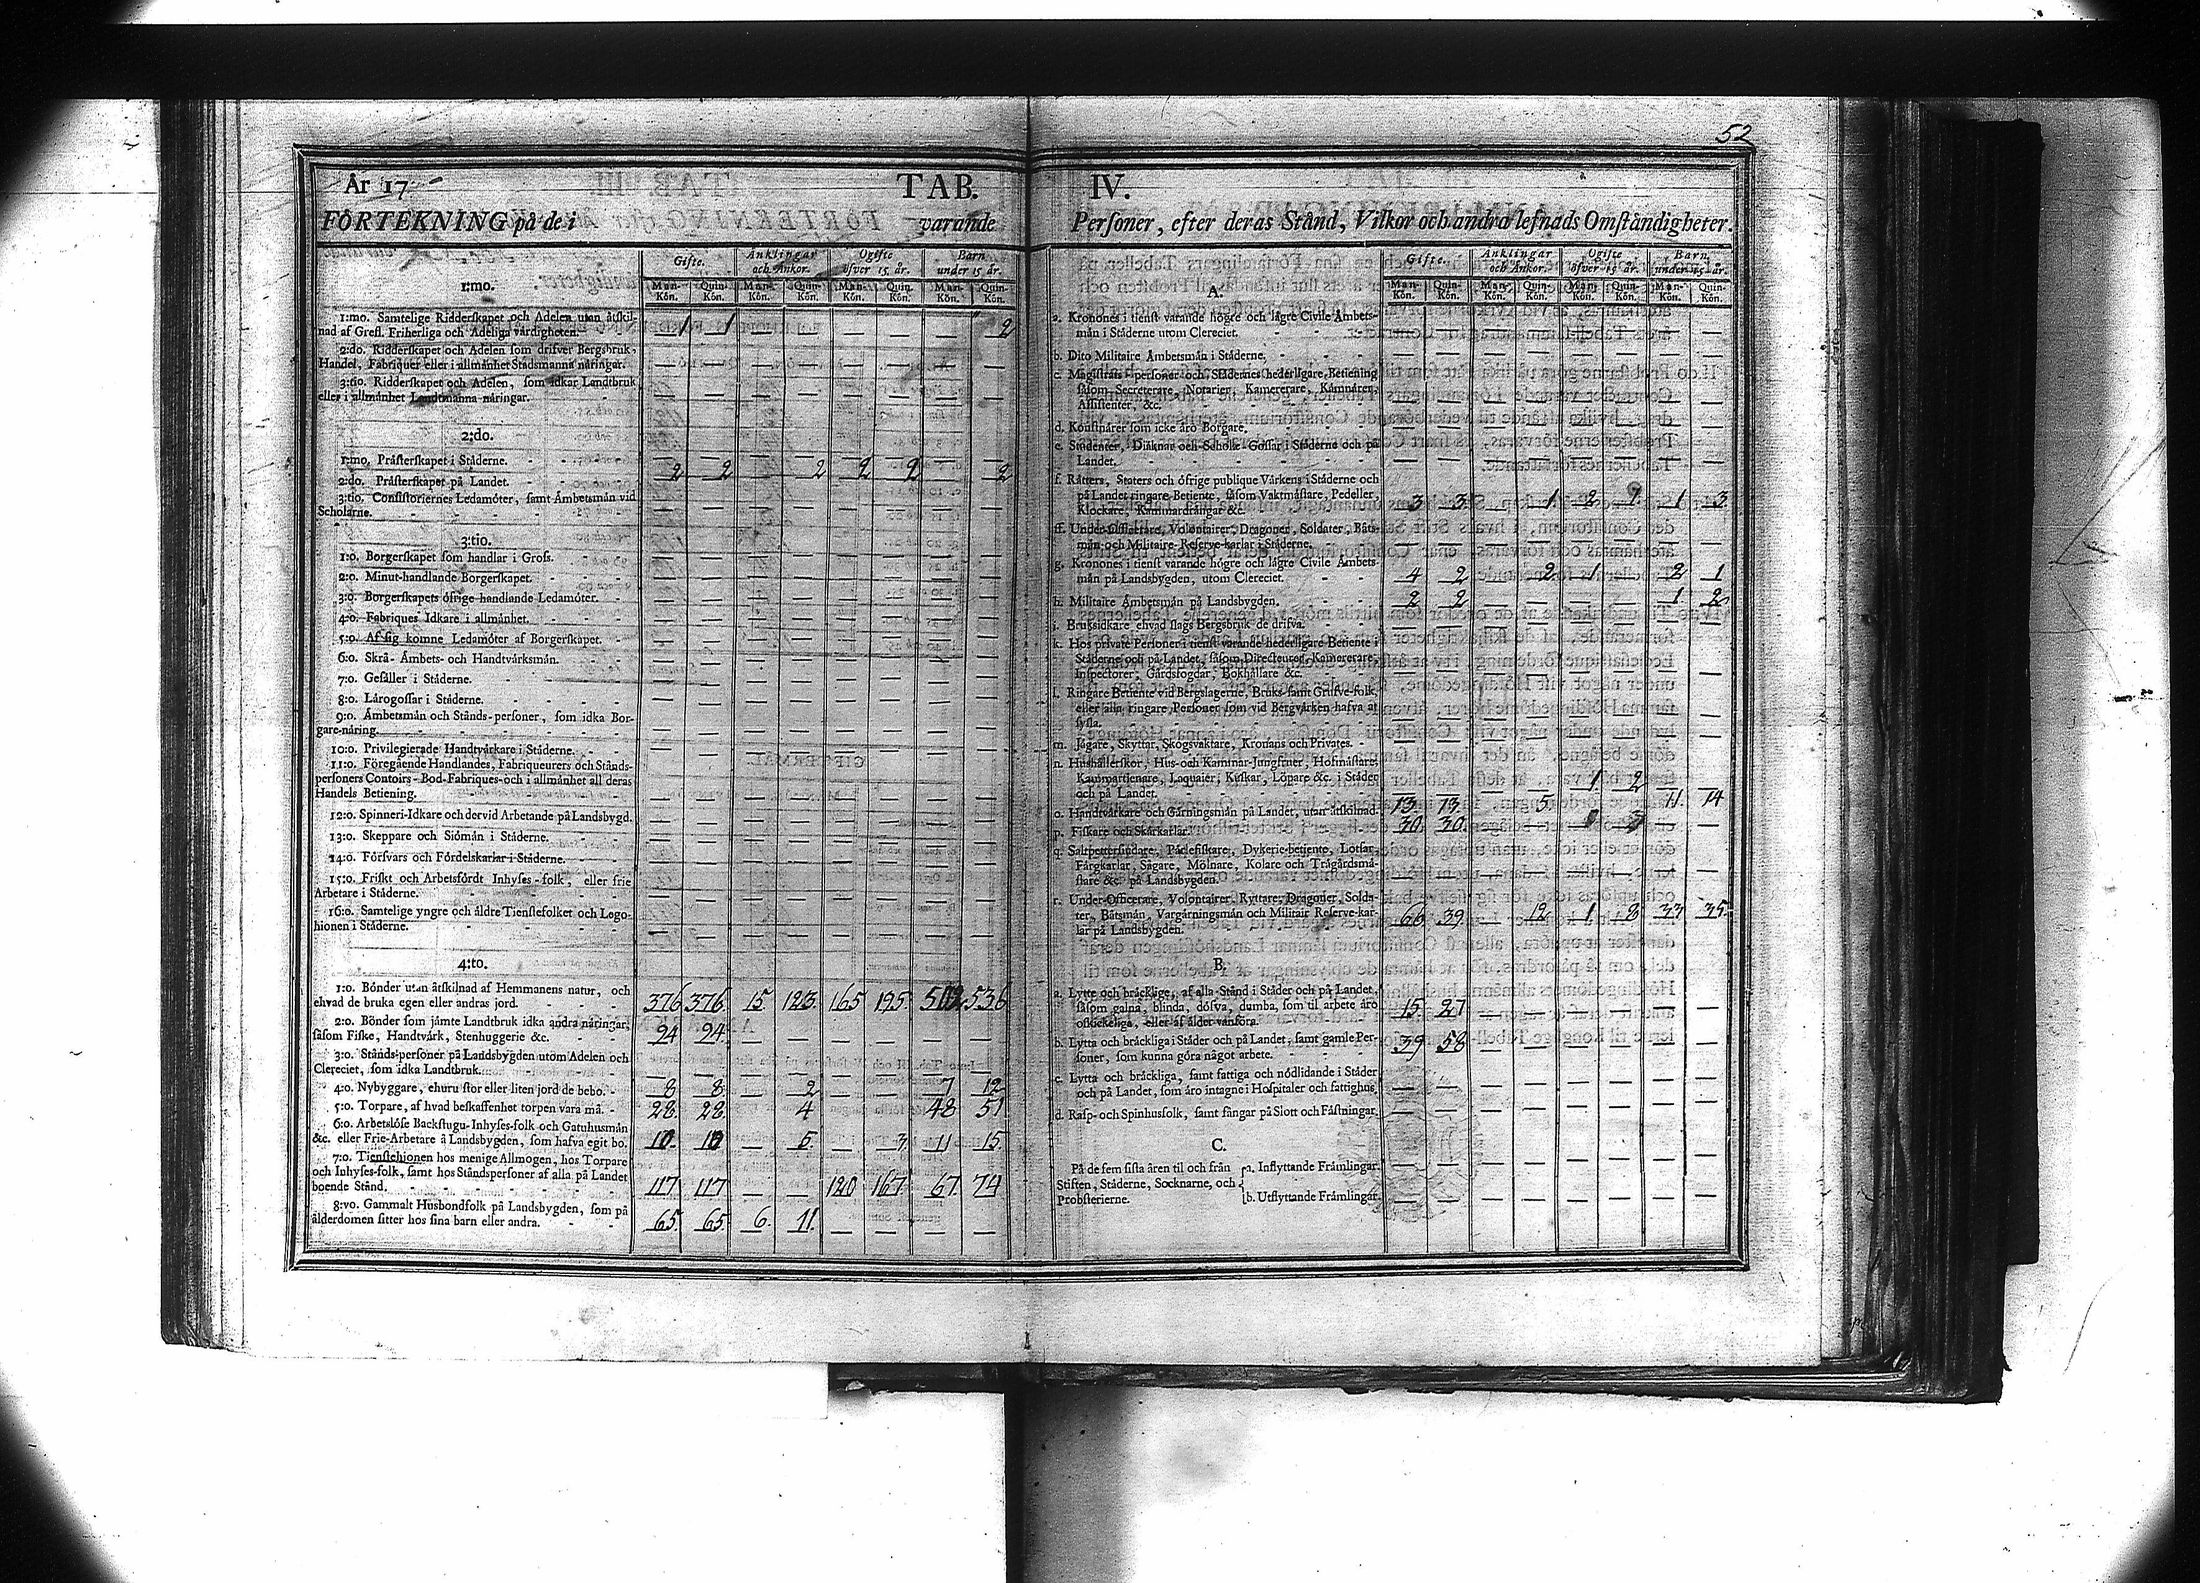 52
År 17 TAB. IV.
FÖRTEKNING på de i varande Perſoner, efter deras Stånd, Vilkor och andra lefnads Omſtåndigheter.
Gifte. Ånklingar och Ånkor. Ogifte öfver 15. år. Barn under 15. år.
Man-Kön. Quin-Kön. Man-Kön. Quin-Kön. Man-Kön. Quin-Kön. Man-Kön. Quin-Kön.
1:mo.
1:mo. Samtelige Ridderſkapet och Adelen utan åtſkil-
nad af Grefl. Friherliga och Adeliga vårdigheter. 1 1 — — — — — 2
2:do. Ridderſkapet och Adelen ſom drifver Bergsbruk,
Handel, Fabriquer eller i allmånhet Stadsmanna nåringar. — — — — — — — —
3:tio. Ridderſkapet och Adelen, ſom idkar Landtbruk
eller i allmånhet Landtmanna nåringar. — — — — — — — —
2:do.
1:mo. Pråſterſkapet i Ståderne.
2:do. Pråſterſkapet på Landet. 2 2 — 2 2 2 — 2
3:tio. Conſiſtoriernes Ledamöter, ſamt Åmbetsmån vid
Scholarne. — — — — — — — —
3:tio.
1:o. Borgerſkapet ſom handlar i Groſs. — — — — — — — —
2:o. Minut-handlande Borgerſkapet. — — — — — — — —
3:o. Borgerſkapets öfrige handlande Ledamöter. — — — — — — — —
4:o. Fabriques Idkare i allmånhet. — — — — — — — —
5:o. Af ſig komne Ledamöter af Borgerſkapet. — — — — — — — —
6:o. Skrå- Åmbets- och Handtvårksmån. — — — — — — — —
7:o. Geſåller i Ståderne. — — — — — — — —
8:o. Lårogoſſar i Ståderne. — — — — — — — —
9:o. Åmbetsmån och Stånds-perſoner, ſom idka Bor-
gare-nåring. — — — — — — — —
10:o. Privilegierade Handtvårkare i Ståderne. — — — — — — — —
11:o. Föregående Handlandes, Fabriqueurers och Stånds-
perſoners Contoirs- Bod-Fabriques-och i allmånhet all deras
Handels Betiening. — — — — — — — —
12:o. Spinneri-Idkare och dervid Arbetande på Landsbygd. — — — — — — — —
13:o. Skeppare och Siömån i Ståderne. — — — — — — — —
14:o. Förſvars och Fördelskarlar i Ståderne. — — — — — — — —
15:o. Friſkt och Arbetsfördt Inhyſes-folk, eller frie
Arbetare i Ståderne. — — — — — — — —
16:o. Samtelige yngre och åldre Tienſtefolket och Lego-
hionen i Ståderne. — — — — — — — —
4:to.
1:o. Bönder utan åtſkilnad af Hemmanens natur, och
ehvad de bruka egen eller andras jord. 376 376 15 123 165 195 502 536
2:o. Bönder ſom jåmte Landtbruk idka andra nåringar,
ſåſom Fiſke, Handtvårk, Stenhuggerie &c. 94 94 — — — — — —
3:o. Stånds-perſoner på Landsbygden utom Adelen och
Clereciet, ſom idka Landtbruk. — — — — — — — —
4:o. Nybyggare, ehuru ſtor eller liten jord de bebo. 8 8 — 2 — — 7 12
5:o. Torpare, af hvad beſkaffenhet torpen vara må. 28 28 — 4 — — 48 51
6:o. Arbetslöſe Backſtugu-Inhyſes-folk och Gatuhusmån
&c. eller Frie-Arbetare å Landsbygden, ſom hafva egit bo. 10 10 — 5 — 3 11 15
7:o. Tienſtehionen hos menige Allmogen, hos Torpare
och Inhyſes-folk, ſamt hos Ståndsperſoner af alla på Landet
boende Stånd. 117 117 — — 120 167 67 74
8:vo. Gammalt Husbondfolk på Landsbygden, ſom på
ålderdomen ſitter hos ſina barn eller andra. 65 65 6 11 — — — —
Gifte. Ånklingar och Ånkor. Ogifte öfver 15 år. Barn under 15 år.
Man-Kön. Quin-Kön. Man-Kön. Quin-Kön. Man-Kön. Quin-Kön. Man-Kön. Quin-Kön.
A.
a. Kronones i tienſt varande högre och lågre Civile Åmbets-
mån i Ståderne utom Clereciet. — — — — — — — —
b. Dito Militaire Åmbetsmån i Ståderne. — — — — — — — —
c. Magiſtrats perſoner och Stådernes hederligare Betiening
ſåſom Secreterare, Notarier, Kamererare, Kåmnårer,
Aſſiſtenter, &c. — — — — — — — —
d. Konſtnårer ſom icke åro Borgare. — — — — — — — —
e. Studenter, Diåknar och Schole-Goſſar i Ståderne och på
Landet. — — — — — — — —
f. Råtters, Staters och öfrige publique Vårkens i Ståderne och
på Landet ringare Betiente, ſåſom Vaktmåſtare, Pedeller,
Klockare, Kammardrångar &c. 3 3 — 1 2 1 1 3
ff. Under-Officerare, Volontairer, Dragoner, Soldater, Båts-
mån och Militaire-Reſerve-karlar i Ståderne. — — — — — — — —
g. Kronones i tienſt varande högre och lågre Civile Åmbets-
mån på Landsbygden, utom Clereciet. 4 2 — 2 1 — 2 1
h. Militaire Åmbetsmån på Landsbygden. 2 2 — — — — 1 2
i. Bruksidkare ehvad ſlags Bergsbruk de drifva. — — — — — — — —
k. Hos private Perſoner i tienſt varande hederligare Betiente i
Ståderne och på Landet, ſåſom Directeurer, Kamererare,
Inſpectorer, Gårdsfogdar, Bokhållare &c. — — — — — — — —
l. Ringare Betiente vid Bergslagerne, Bruks-ſamt Grufve-folk,
eller alla ringare Perſoner ſom vid Bergvårken hafva at
ſyſla. — — — — — — — —
m. Jågare, Skyttar, Skogsvaktare, Kronans och Privates. — — — — — — — —
n. Hushållerſkor, Hus-och Kammar-Jungfruer, Hofmåſtare,
Kammartienare, Laquaier, Kuſkar, Löpare &c. i Ståder
och på Landet. — — — — 1 2 — —
o. Handtvårkare och Gårningsmån på Landet, utan åtſkilnad. 13 13 — 5 — — 11 14
p. Fiſkare och Skårkarlar. 30 30 — — — 3 — —
q. Saltpetterſiudare, Pårlefiſkare, Dykerie-betiente, Lotſar,
Fårgkarlar, Sågare, Mölnare, Kolare och Trågårdsmå-
ſtare &c. på Landsbygden. — — — — — — — —
r. Under-Officerare, Volontairer, Ryttare, Dragoner, Solda-
ter, Båtsmån, Vargårningsmån och Militair Reſerve-kar-
lar på Landsbygden. 66 39 — 12 1 8 33 35
B.
a. Lytte och bråcklige, af alla Stånd i Ståder och på Landet,
ſåſom galna, blinda, döfva, dumba, ſom til arbete åro
oſkickeliga, eller af ålder vanföra. 15 27 — — — — — —
b. Lytta och bråckliga i Ståder och på Landet, ſamt gamle Per-
ſoner, ſom kunna göra något arbete. 39 58 — — — — — —
c. Lytta och bråckliga, ſamt fattiga och nödlidande i Ståder
och på Landet, ſom åro intagne i Hoſpitaler och fattighus. — — — — — — — —
d. Raſp- och Spinhusfolk, ſamt fångar på Slott och Fåſtningar. — — — — — — — —
C.
På de fem ſiſta åren til och från
Stiften, Ståderne, Socknarne, och
Probſterierne.
a. Inflyttande Fråmlingar. — — — — — — — —
b. Utflyttande Fråmlingar. — — — — — — — —